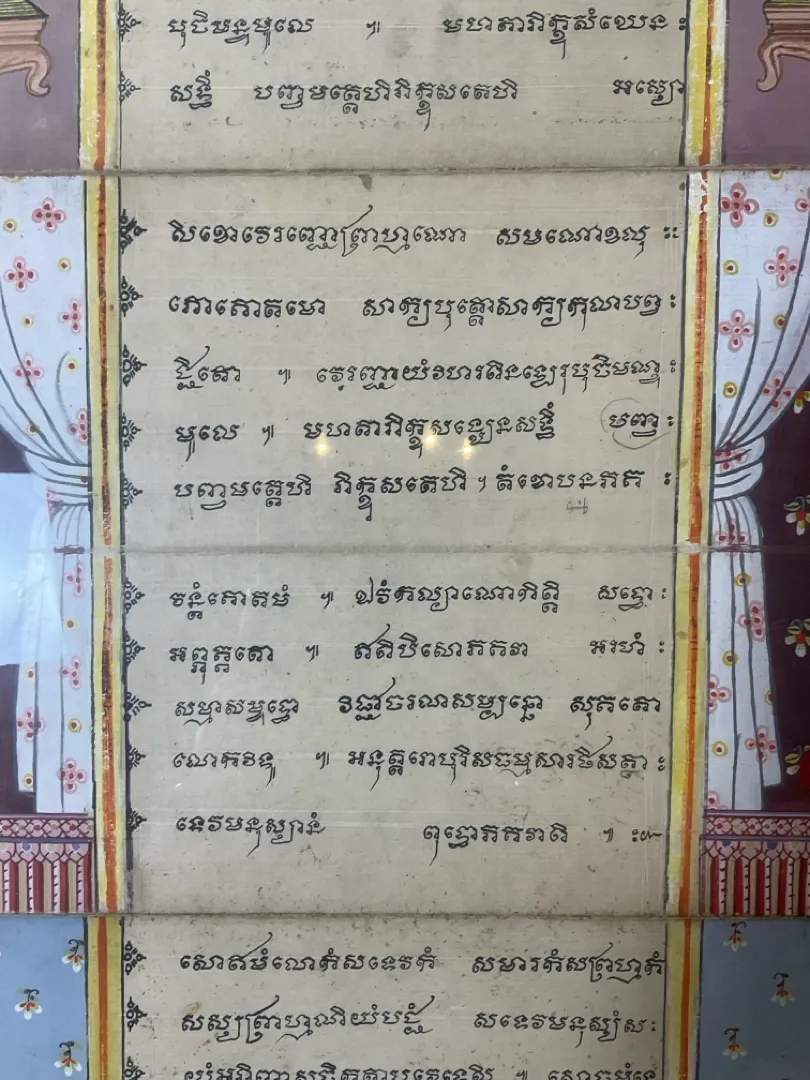 បុចិមន្ទមូលេ ៕ មហតាភិក្ខុសំឃេន ៖
សទ្ធឹ បញ្ចមត្តេហិភិក្ខុសតេហិ អស្សោ
សិខោវេរញ្ជោព្រាហ្មណោ សមណោខលុ ៖
ភោគោតមោ សាក្យបុត្តោសាក្យកុលាបព្វ ៖
ជ្ជិតោ ៕ វេរញ្ជាយំវិហរតិនឡេរុបុចិមណ្ឌ ៖
មូលេ ៕ មហតាភិក្ខុសង្ឃេនសទ្ធឹ បញ្ច ៖
បញ្ចមត្តេហិ ភិក្ខុសតេហិ ។ តំខោបនភគ ៖
វន្តំគោតមំ ៕ ឯវំកល្យាណោកិត្តិ សទ្ទោ ៖
អព្ភុគ្គតោ ៕ ឥតិបិសោភគវា អរហំ ៖
សម្មាសម្ពុទ្ធោ វិជ្ជាចរណសម្បន្នោ សុគតោ
លោកវិទូ ៕ អនុត្តរោបុរិសធម្មសារថិសត្ថា ៖
ទេវមនុស្សានំ ពុទ្ធោភគវាតិ ៕
សោឥមំលោកំសទេវកំ សមារកំសព្រហ្មកំ
សស្សព្រាហ្មណិយំបជំ សទេវមនុស្សំស ៖